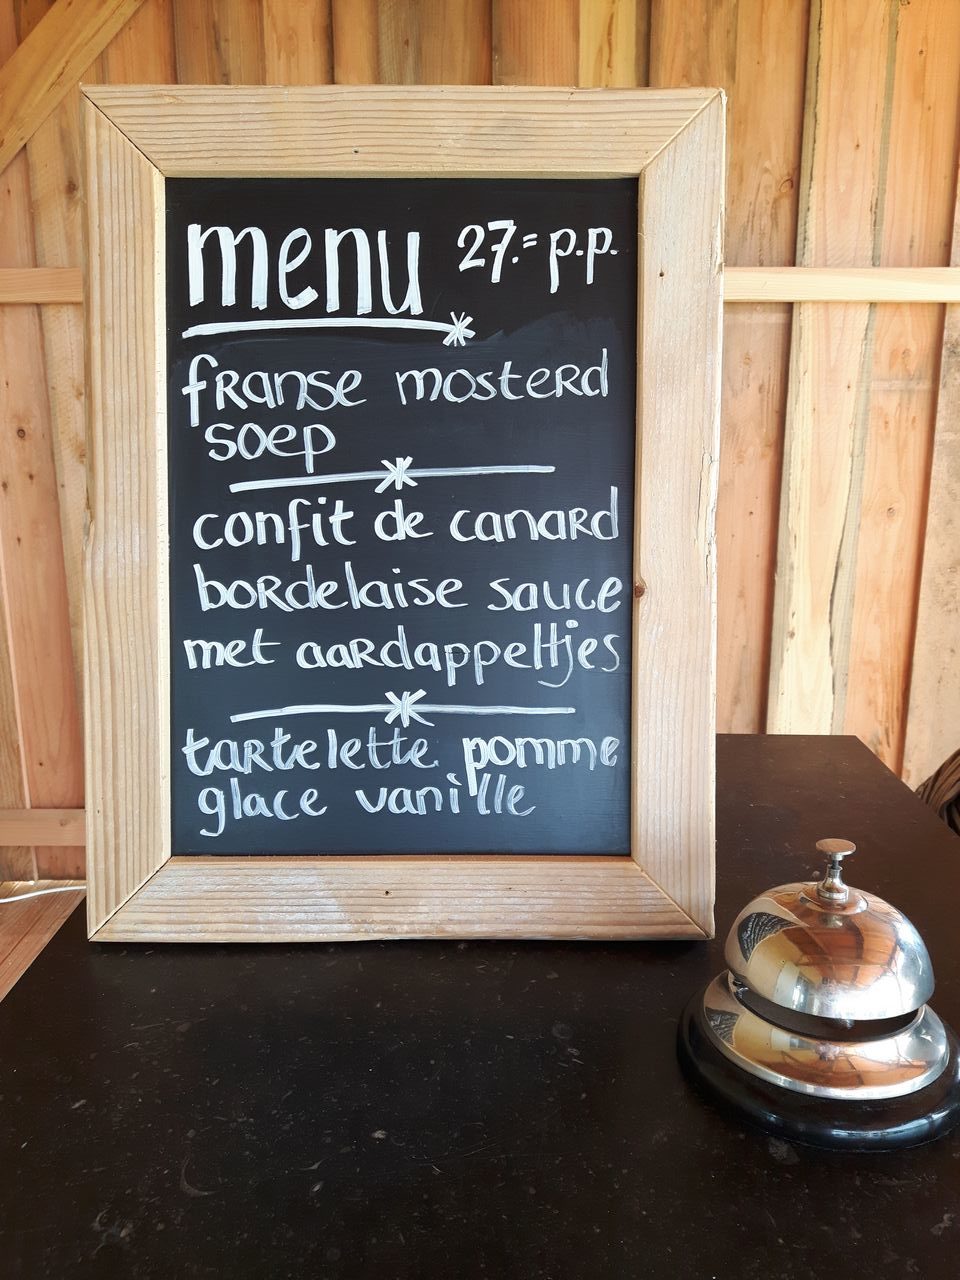 menu 27.= p.p.
franse mosterd
soep
confit de canard
bordelaise sauce
met aardappeltjes
tartelette pomme
glace vanille